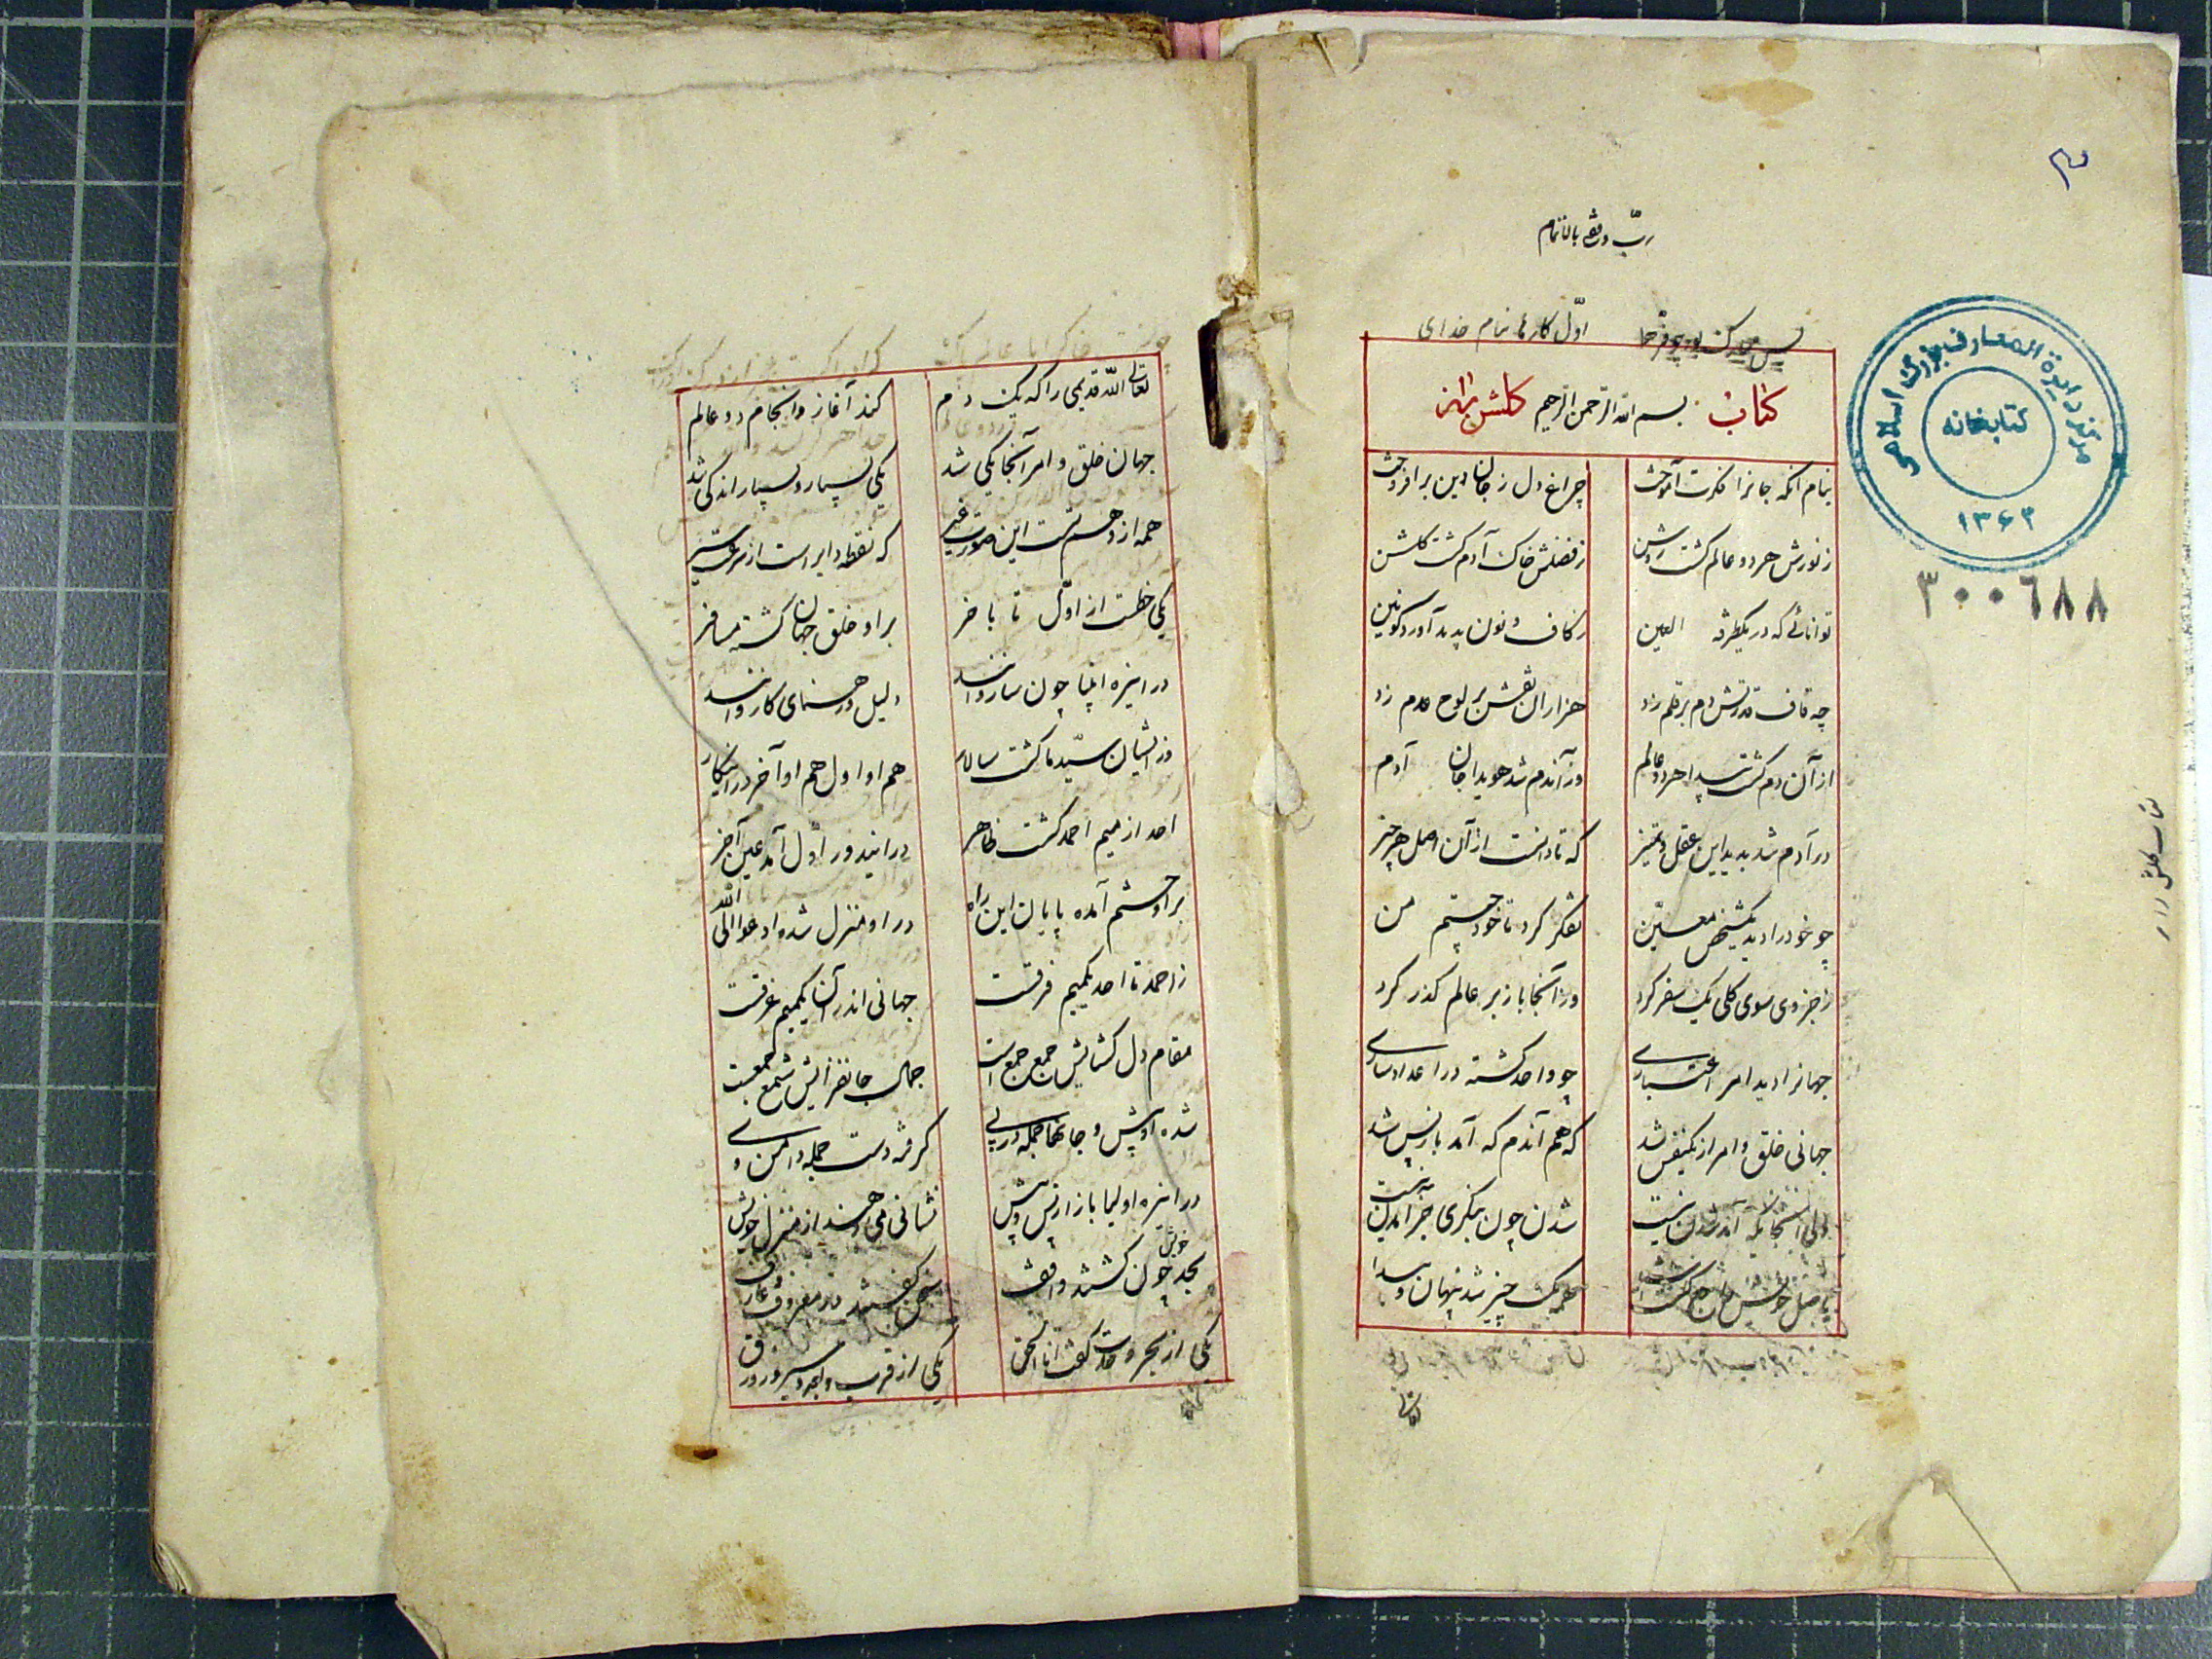 ربّ وفقنی بالاتمام
اوّل کارها بنام خدای
کتاب بسم الله الرحمن الرحیم گلشن راز
بنام آنکه جانرا فکرت آموخت چراغ دل ز جان دین برافروخت
ز نورش هر دو عالم گشت روشن ز فضلش خاک آدم گشت گلشن
توانائی که در یکطرفه العین ز کاف و نون پدید آورد کونین
چه قاف قدرتش دم بر قلم زد هزاران نقش بر لوح عدم زد
از آن دم گشت پیدا هر دو عالم وز آندم شد هویدا جان آدم
در آدم شد پدید این عقل و تمیز که تا دانست از آن اصل هر چیز
چو خود را دید یکشخص معین تفکر کرد تا خود چیستم من
ز جزوی سوی کلی یک سفر کرد وز آنجا باز بر عالم گذر کرد
جهانرا دید امر اعتباری چو واحد گشته در اعداد ساری
جهانی خلق و امر از یکنفس شد که هم آندم که آمد باز پس شد
ولی اینجایگه آمد شدن نیست شدن چون بنگری جز آمدن نیست
باصل خویش راجع گشت اشیا همه یک چیز شد پنهان و پیدا
تعالی
مرکز دایرة المعارف بزرگ اسلامی
کتابخانه
۱۳۶۲
۳۰۰۶۸۸
کتاب گلشن راز
تعالی الله قدیمی را که یک دم کند آغاز و انجام دو عالم
جهان خلق و امر آنجا یکی شد یکی بسیار و بسیار اندکی شد
همه از وهم تست این صورت غیر که نقطه دایر است از سرعت سیر
یکی خطست از اوّل تا بآخر بر او خلق جهان گشته مسافر
در این ره انبیا چون ساربانند دلیل و رهنمای کاروانند
وز ایشان سیّد ما گشت سالار هم او اول هم او آخر در اینکار
احد از میم احمد گشت ظاهر در این دور اوّل آمد عین آخر
بر او ختم آمده پایان این راه در او منزل شده ادعوا الی الله
ز احمد تا احد یکمیم فرقست جهانی اندر آن یکمیم غرقست
مقام دل گشایش جمع جمع است جمال جانفزایش شمع جمعست
شده او پیش و جانها جمله در پی گرفته دست جمله دامن وی
در این ره اولیا باز از پس و پیش نشانی می دهند از منزل خویش
بحد خویش چون گشتند واقف سخن گفتند در معروف و عارف
یکی از بحر وحدت گفت انا الحق یکی از قرب و بعد و سیر زورق